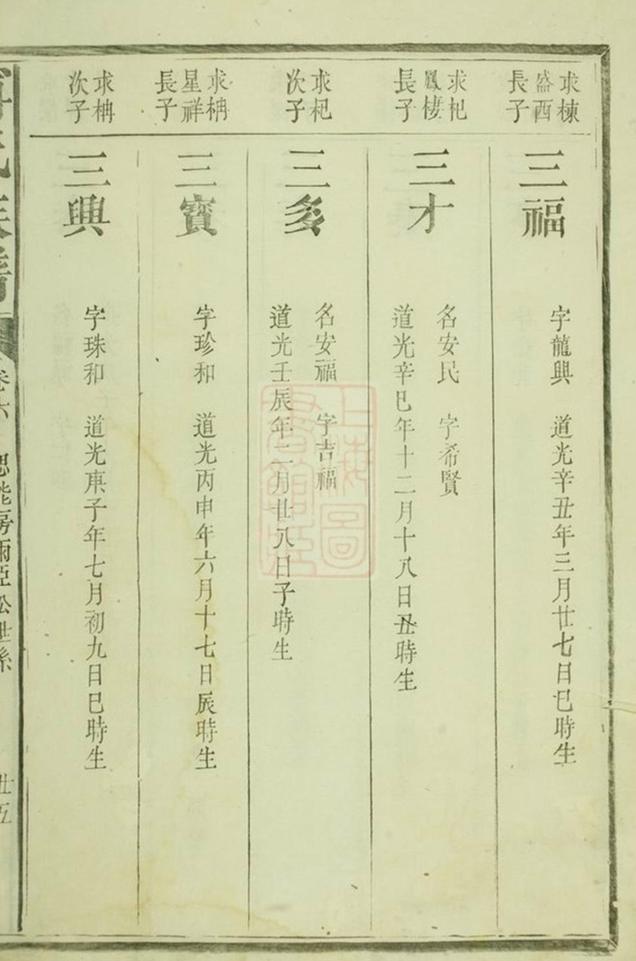 求棟
盛酉
長子
三福
字龍興　道光辛丑年三月廿七日巳時生
求杞
鳳棲
長子
三才
名安民　字希賢
道光辛巳年十二月十八日丑時生
求杞
次子
三多
名安福　字吉福
道光壬辰年二月廿八日子時生
求枬
星祥
長子
三寶
字珍和　道光丙申年六月十七日辰時生
求枬
次子
三興
字珠和　道光庚子年七月初九日巳時生
卷六
思能房爾亞公世系
廿五